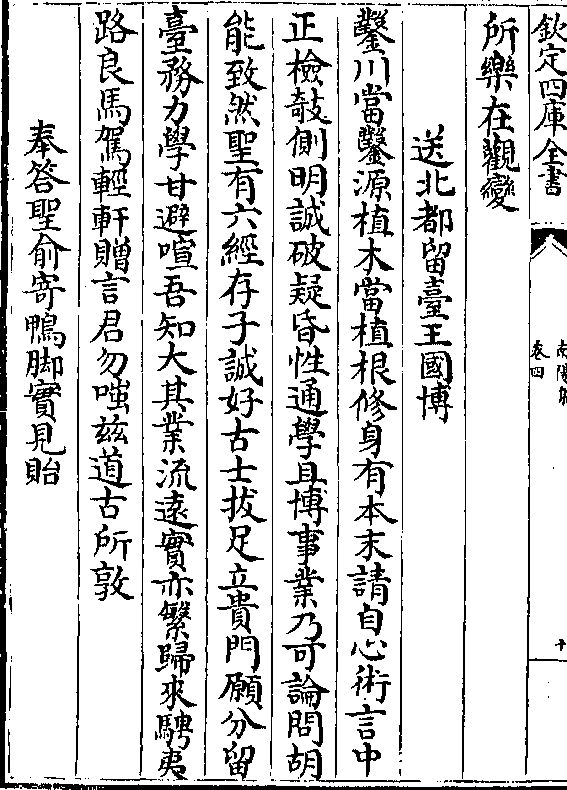 欽定四庫全書
卷四
所樂在觀變
送北都留臺王國博
鑿川當鑿源植木當植根修身有本末請自心術言中
正檢攲側明誠破疑昏性通學且博事業乃可論問胡
能致然聖有六經存子誠好古士拔足立貴門願分留
臺務力學甘避喧吾知大其業流遠實亦繁歸來騁夷
路良馬駕輕軒贈言君勿嗤兹道古所敦
奉答聖俞寄鴨脚實見貽